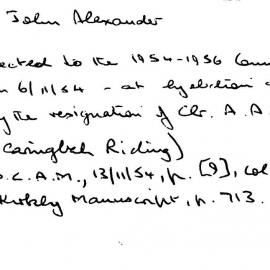 John Alexander
ected to the 1954-1956 Coun
n 6/11/54 - at byelection
y the resignation of Clr. A. A.
Caringbah Riding)
S.C.A.M., 13/11/54, p. [9], col
Kirkby Manuscript, p. 713.